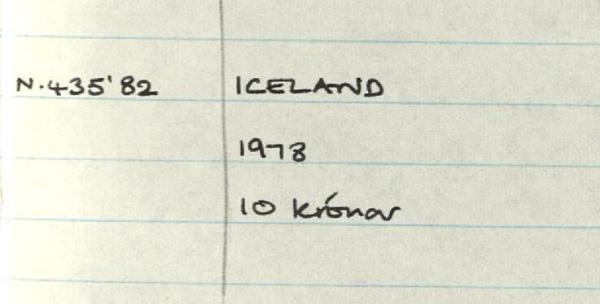 N.435'82 ICELAND
1978
10 krónar